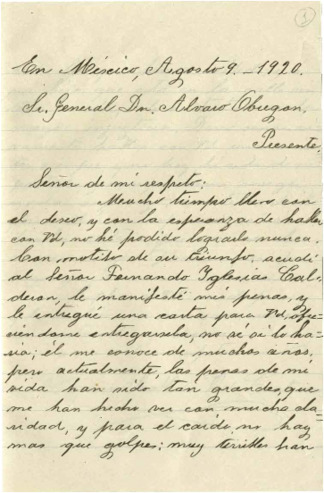 1
En Méxcico, Agosto 9. - 1920.
Sr. General Dn. Alvaro Obregon.
Presente.
Señor de mi respeto:
Mucho tiempo llevo con
el deseo, y con la esperanza de hablar
con Vd, no hé podido lograrlo nunca.
Con motivo de su triunfo, acudí
al Señor Fernando Yglesias Cal-
deron, le manifesté mis penas, y
le entregué una carta para Vd, ofre-
ciendome entregarsela, no sé si lo ha-
ria; él me conoce de muchos años,
pero actualmente, las penas de mi
vida han sido tan grandes, que
me han hecho ver con mucha cla-
ridad, y para el caido, no hay
mas que golpes; muy terribles han